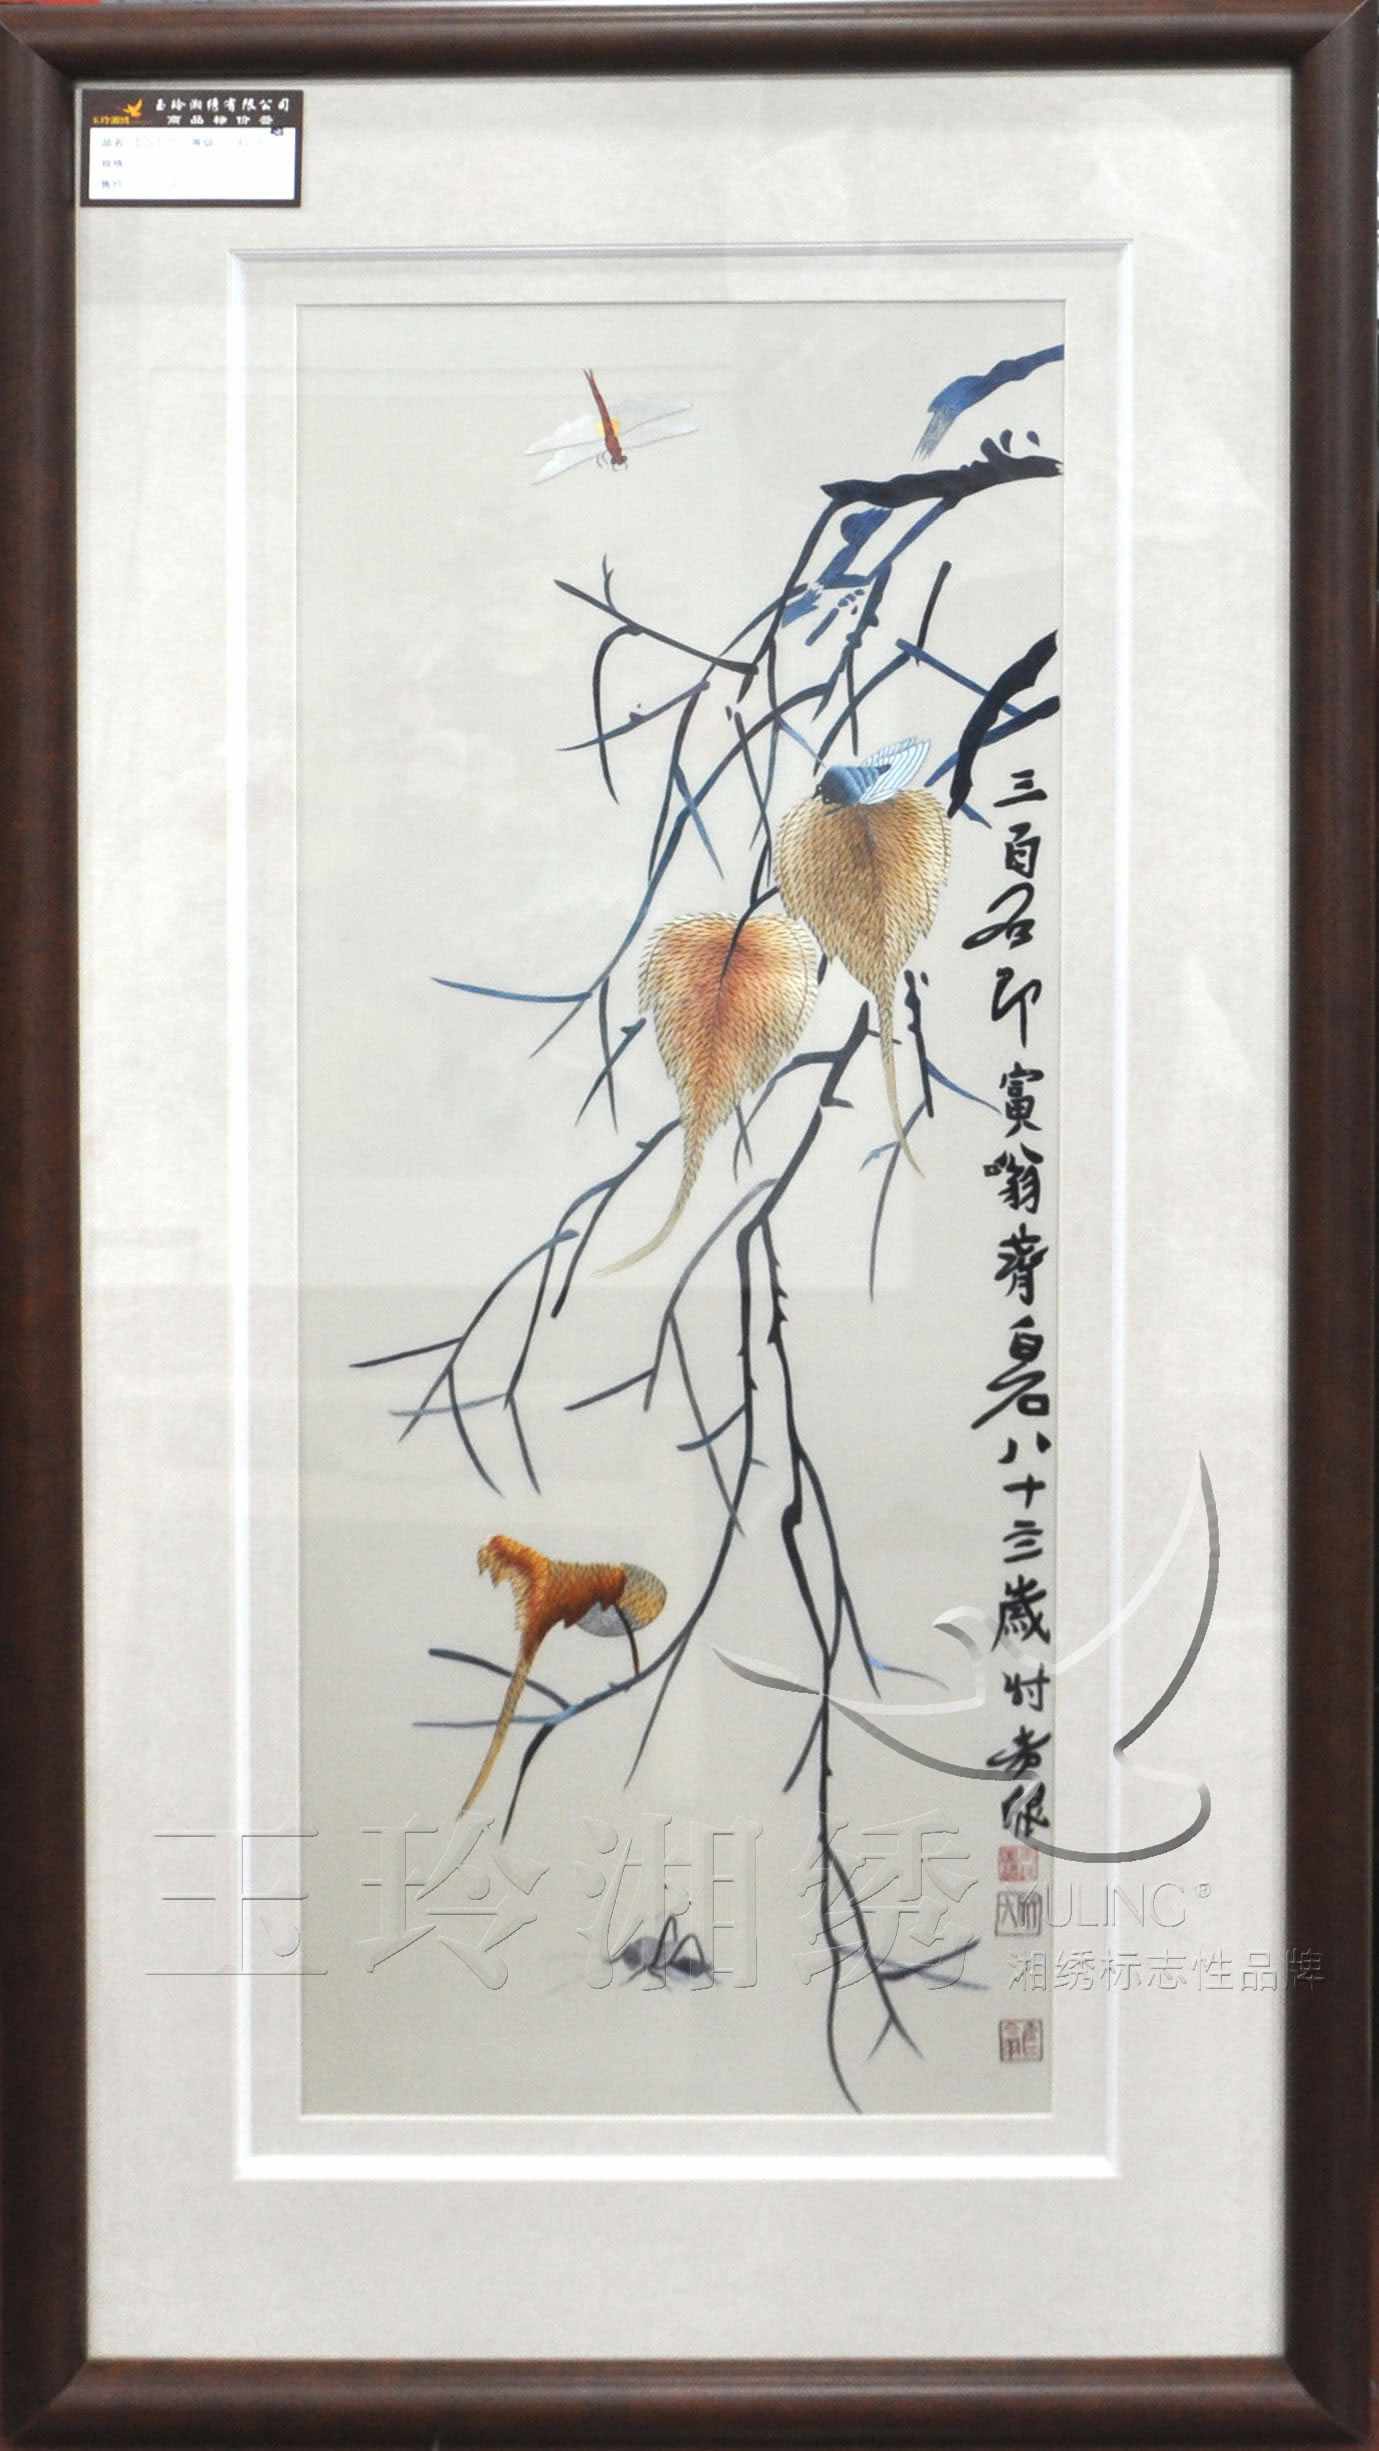 玉玲湘绣有限公司
商品标价签
玉玲湘绣
品名
等级
规格
售价
三百石印富翁齊白石八十三歲时老眼
玉玲湘绣
YULING®
湘绣标志性品牌